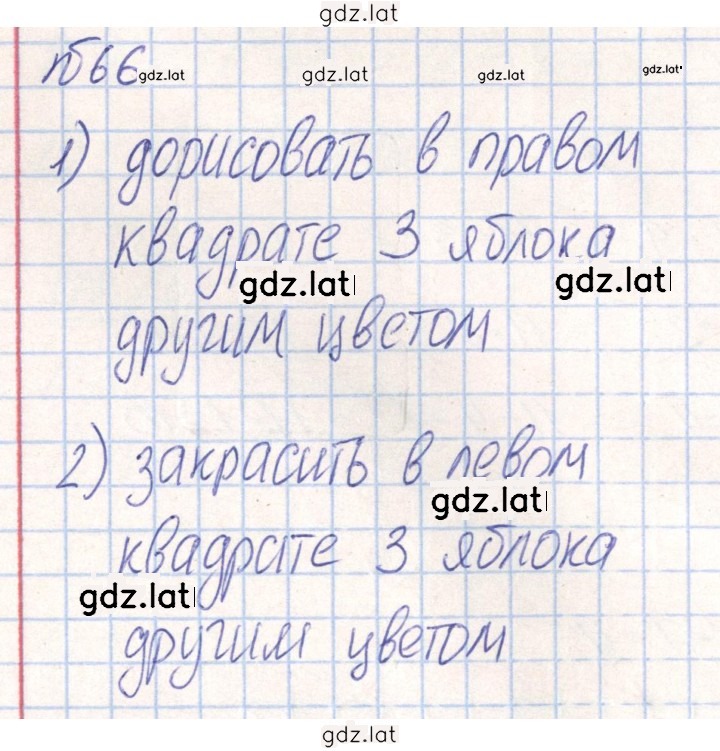 gdz.lat
№66 gdz.lat gdz.lat gdz.lat gdz.lat
1) дорисовать в правом
квадрате 3 яблока
gdz.lat gdz.lat
другим цветом
2) закрасить в левом
gdz.lat
квадрате 3 яблока
gdz.lat
другим цветом
gdz.lat